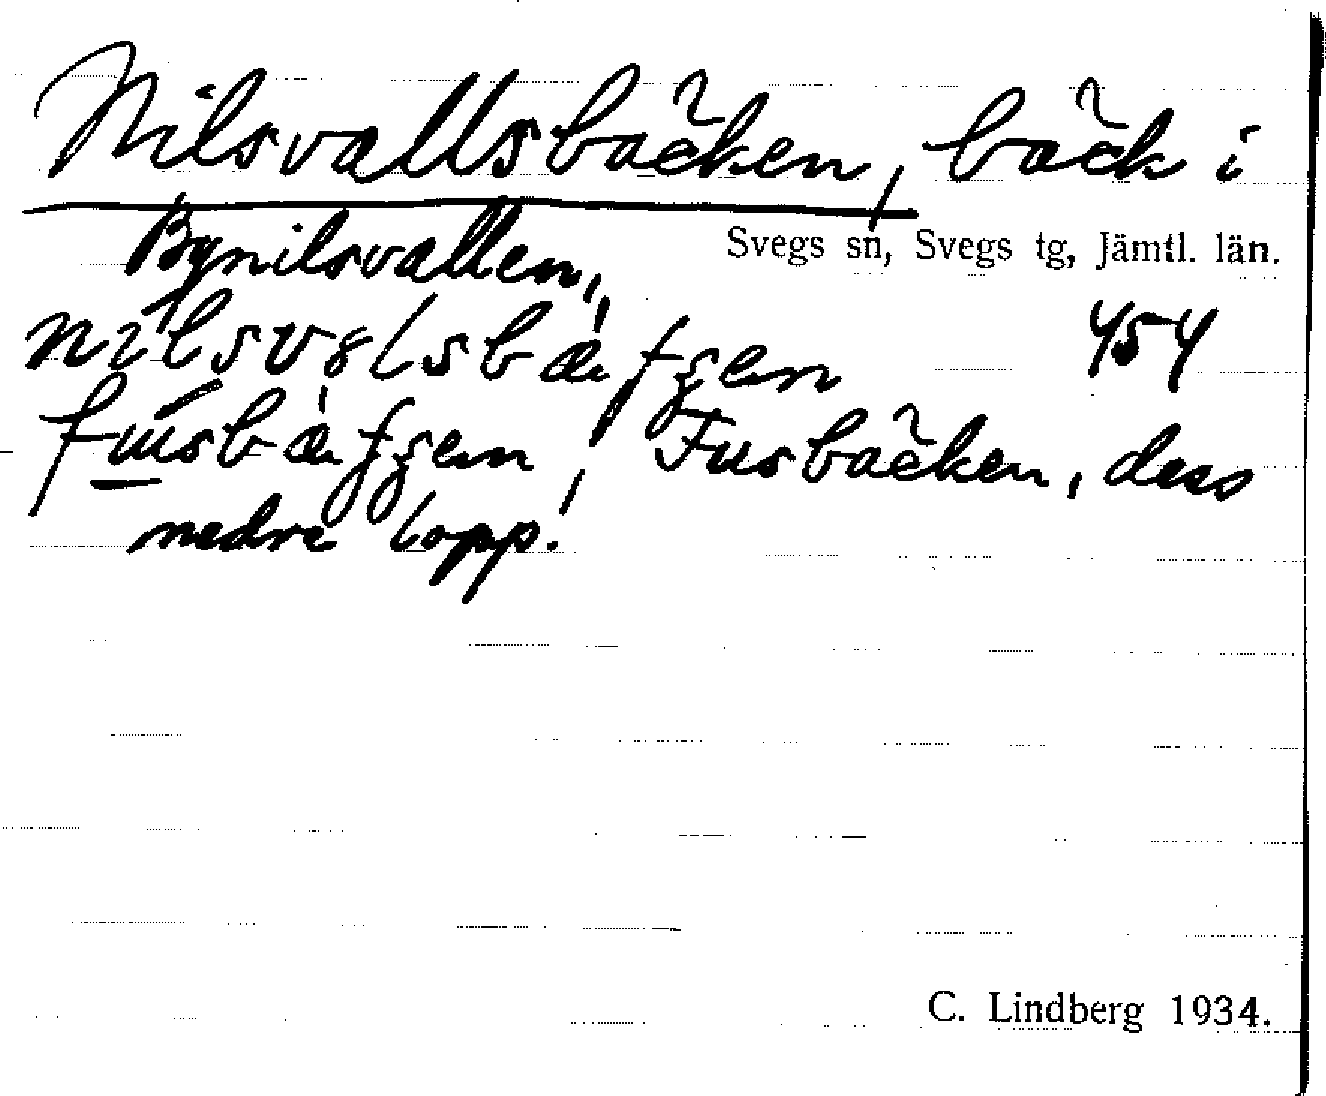 Nilsvallsbäcken, bäck i
Bynilsvallen,
Svegs sn, Svegs tg, Jämtl. län.
454
Fusbäcken, dess
nedre lopp.
C. Lindberg 1934.